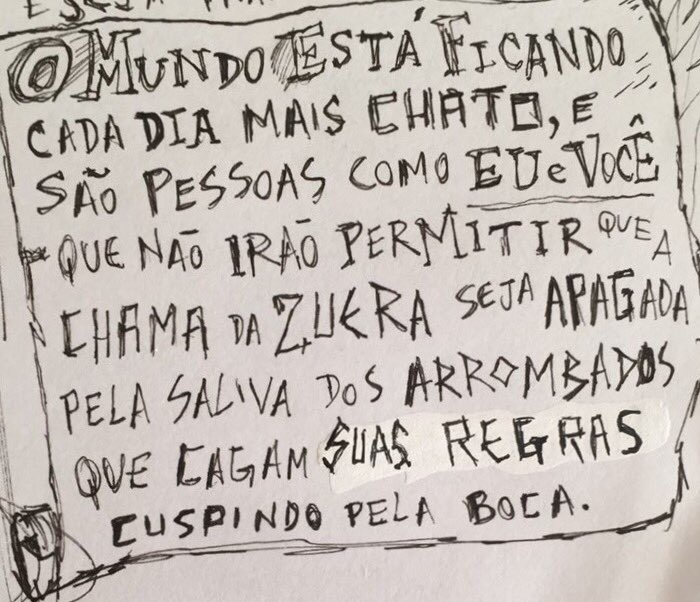 O MUNDO ESTÁ FICANDO
CADA DIA MAIS CHATO, E
SÃO PESSOAS COMO EU e VOCÊ
QUE NÃO IRÃO PERMITIR QUE A
CHAMA DA ZUERA SEJA APAGADA
PELA SALIVA DOS ARROMBADOS
QUE CAGAM SUAS REGRAS
CUSPINDO PELA BOCA.